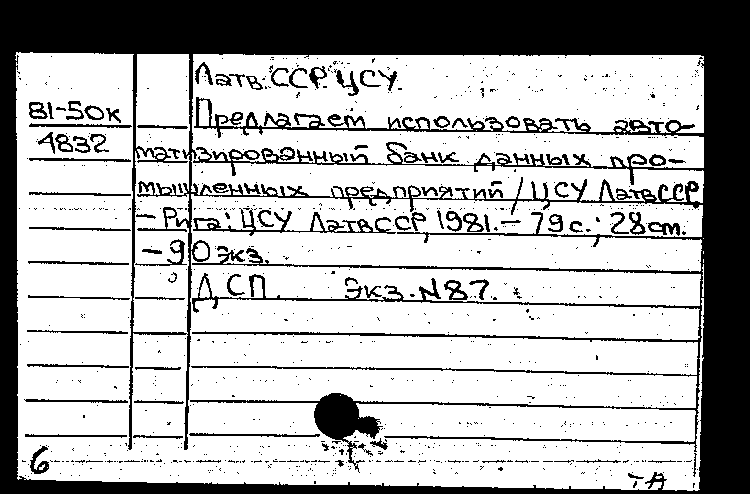 Латв. ССР. ЦСУ.
81-50к Предлагает использовать авто-
4832 матизированный банк данных про-
мышленных предприятий / ЦСУ ЛатвССР.
– Рига: ЦСУ ЛатвССР, 1981. – 79 с.; 28 см.
– 90 экз.
ДСП. Экз. N 87.
6